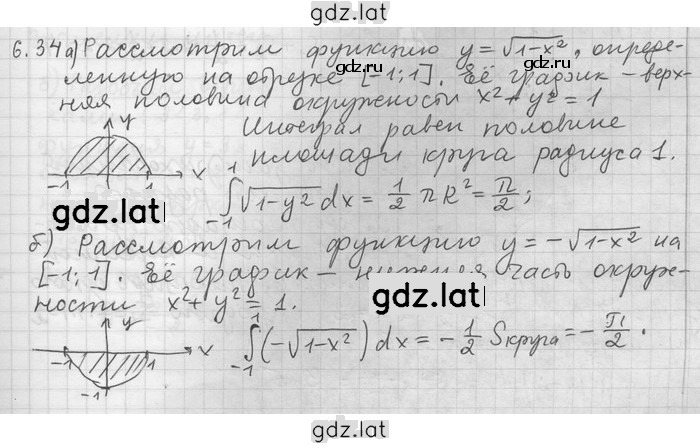 gdz.lat
6.34 а) Рассмотрим функцию y = √(1-x²), опреде-
gdz.lat
ленную на отрезке [-1; 1]. Её график – верх-
няя половина окружности x² + y² = 1
gdz.lat
y
Интеграл равен половине
площади круга радиуса 1.
-1 1 x
∫₋₁¹ √(1-y²) dx = 1/2 πR² = π/2;
gdz.lat
б) Рассмотрим функцию y = -√(1-x²) на
[-1; 1]. Её график – нижняя часть окруж-
gdz.lat
ности x² + y² = 1.
y
-1 1 x
-1
∫₋₁¹ (-√(1-x²)) dx = -1/2 Sкруга = -π/2.
gdz.lat